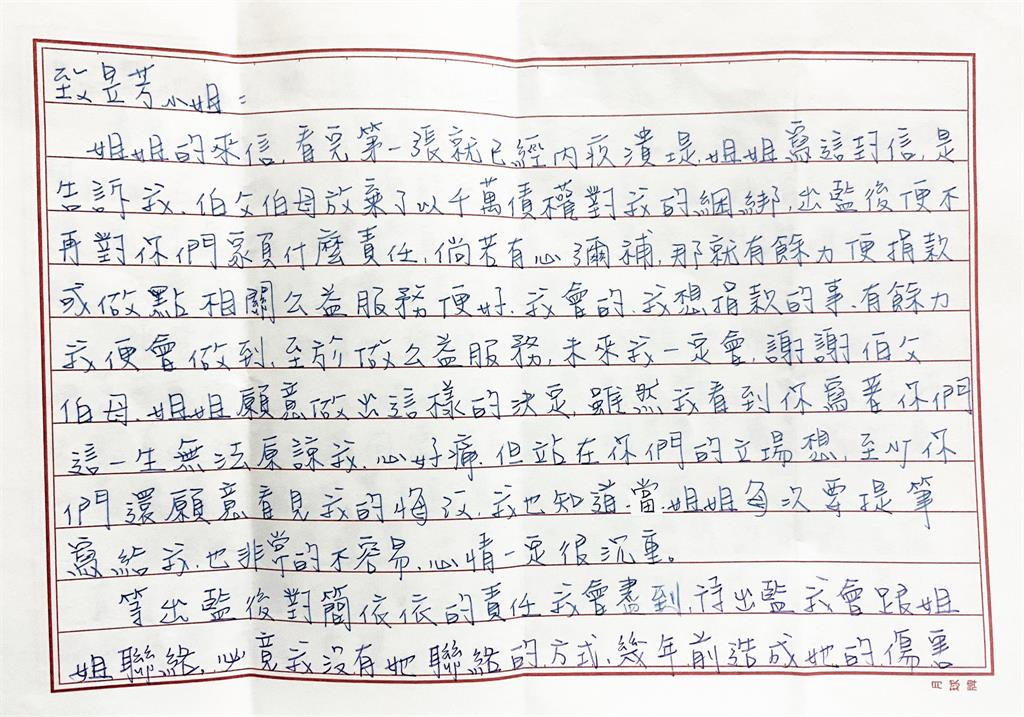 致昱芳小姐：
姐姐的來信，看完第一張就已經內疚潰堤，姐姐寫這封信，是
告訴我，伯父伯母放棄了以千萬債權對我的綑綁，出監後便不
再對你們虧負什麼責任，倘若有心彌補，那就有餘力便捐款
或做點相關公益服務便好，我會的，我想捐款的事，有餘力
我便會做到，至於做公益服務，未來我一定會，謝謝伯父
伯母，姐姐願意做出這樣的決定，雖然我看到你寫著你們
這一生無法原諒我，心好痛，但站在你們的立場想，至少你
們還願意看見我的悔改，我也知道，當姐姐每次要提筆
寫給我，也非常的不容易，心情一定很沉重。
等出監後對簡依依的責任我會盡到，待出監我會跟姐
姐聯絡，必竟我沒有她聯絡的方式，幾年前造成她的傷害